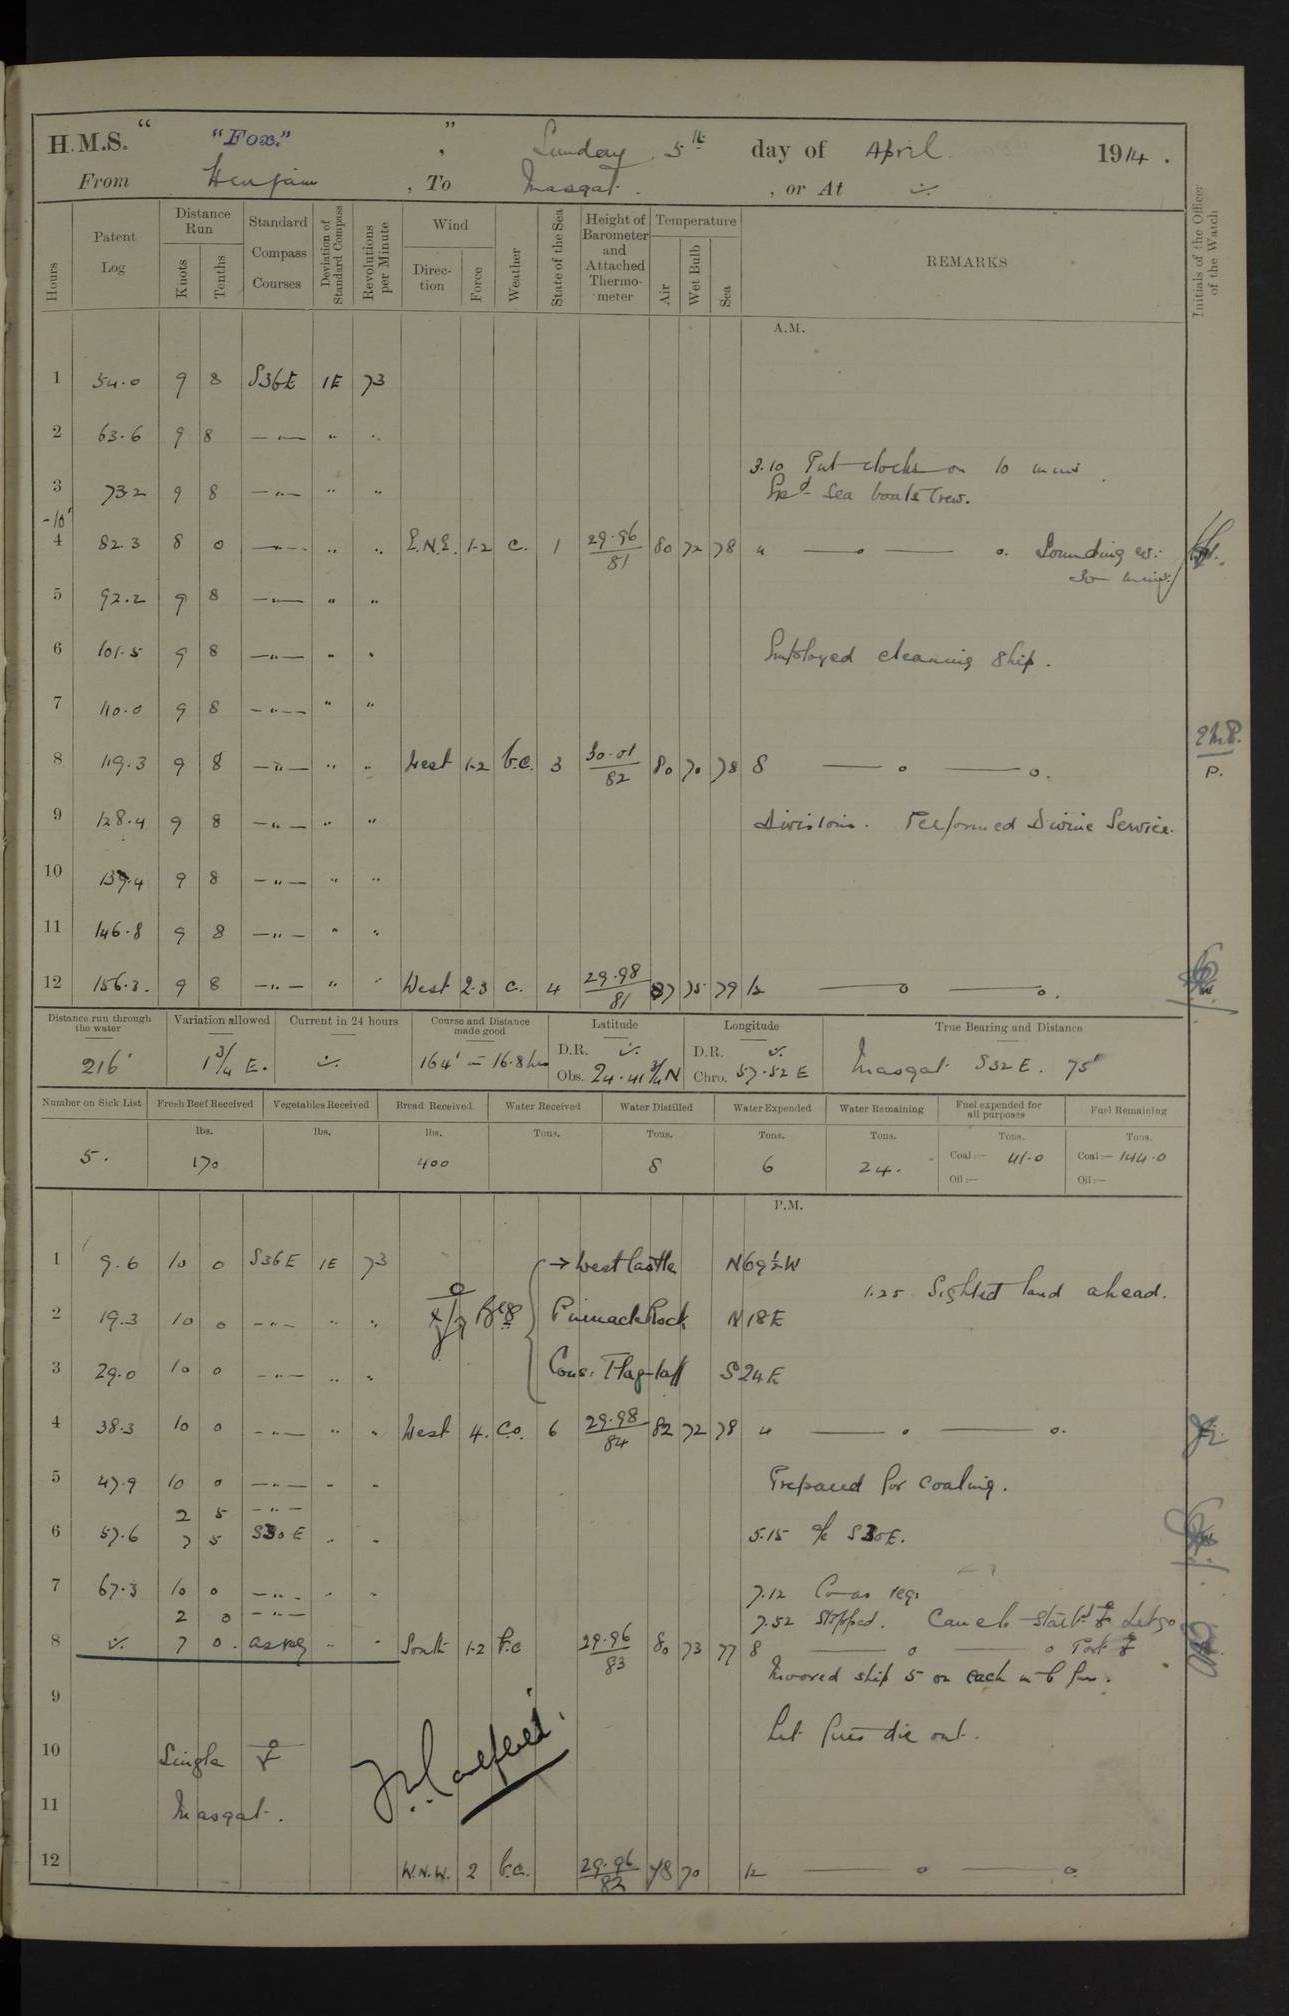 H.M.S. " "Fox." " , Sunday 5th day of April 1914.
From Henjam , To Masqat. , or At
Hours
Patent Log
Distance Run
Knots
Tenths
Standard Compass Courses
Deviation of Standard Compass
Revolutions per Minute
Wind
Direction
Force
Weather
State of the Sea
Height of Barometer and Attached Thermometer
Temperature
Air
Wet Bulb
Sea
REMARKS
Initials of the Officer of the Watch
A.M.
1 54.0 9 8 S36E 1E 73
2 63.6 9 8 —"— " "
3.10 Put clocks on 10 mins.
3 73.2 9 8 —"— " "
Exd Sea boats Crew.
-10'
4 82.3 8 0 —"— " " E.N.E. 1-2 c. 1 29.96/81 80 72 78 4 —o— o. Sounding ev:
30 mins:
5 92.2 9 8 —"— " "
6 101.5 9 8 —"— " " Employed cleaning ship.
7 110.0 9 8 —"— " "
8 119.3 9 8 —"— " " West 1-2 b.c. 3 30.01/82 80 70 78 8 — o — o.
P.
9 128.4 9 8 —"— " " Divisions. Performed Divine Service.
10 137.4 9 8 —"— " "
11 146.8 9 8 —"— " "
12 156.3. 9 8 —"— " " West 2.3 c. 4 29.98/81 87 75 79 12 — o — o.
Distance run through the water
Variation allowed
Current in 24 hours
Course and Distance made good
Latitude
Longitude
True Bearing and Distance
216' 1 3/4 E. 164' = 16.8 hrs
D.R.
Obs. 24.41 3/4 N
D.R.
Chro. 57.52 E
Masqat S32E. 75'
Number on Sick List
Fresh Beef Received
Vegetables Received
Bread Received
Water Received
Water Distilled
Water Expended
Water Remaining
Fuel expended for all purposes
Fuel Remaining
lbs. lbs. lbs. Tons. Tons. Tons. Tons. Tons. Tons.
5. 170 400 8 6 24. Coal:— 41.0 Coal:— 144.0
Oil:— Oil:—
P.M.
1 9.6 10 0 S36E 1E 73 → West Castle N69½W
1.25 Sighted land ahead.
2 19.3 10 0 —"— " " Bgs Pinnacle Rock N18E
3 29.0 10 0 —"— " " Cons: Flagstaff S24E
4 38.3 10 0 —"— " " West 4. c.o. 6 29.98/84 82 72 78 4 — o — o.
5 47.9 10 0 —"— " " Prepared for coaling.
2 5 —"—
6 57.6 7 5 S30E " " 5.15 a/c S30E.
7 67.3 10 0 —"— " " 7.12 Co as req:
2 0 —"—
7.52 Stopped. Let go
8 7 0. as req " " South 1-2 b.c 29.96/83 80 73 77 8 — o — o Port
Moored ship 5 on each in 6 fm.
9
Let fires die out.
10 Single
11 Masqat.
12 W.N.W. 2 b.c. 29.96/82 78 70 12 — o — o.